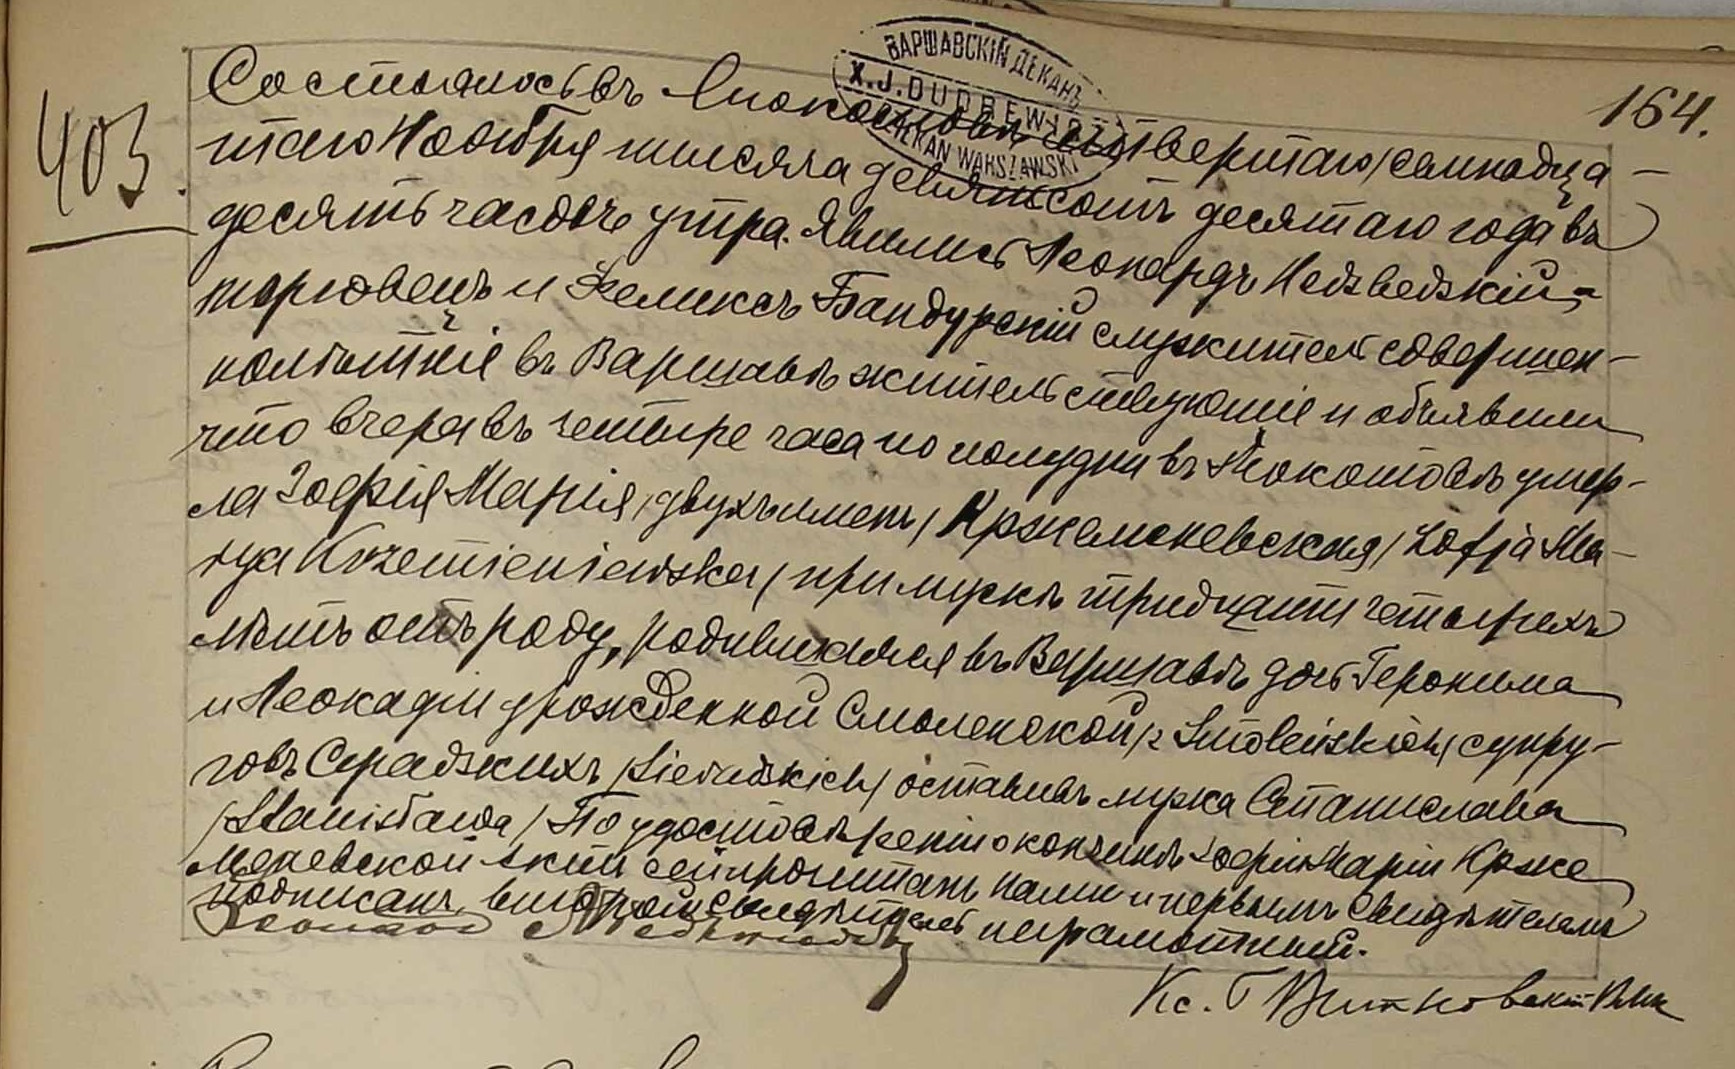 403.
ВАРШАВСКІЙ ДЕКАНЪ
X. J. DUDREWICZ
DZIEKAN WARSZAWSKI
164.
Состоялось въ Мокотовѣ четвертаго /семнадца-
таго Ноября тысяча девятьсотъ десятаго года въ
десять часовъ утра. Явились Леонардъ Недзведзкій
торговецъ и Феликсъ Бандурскій служитель совершен-
нолѣтніе въ Варшавѣ жительствующіе и объявили
что вчера въ четыре часа по полудни въ Мокотовѣ умер-
ла Зофія Марія /двухъ именъ/ Кржеменевская /Zofja Ma-
rya Krzemieniewska/ при мужѣ тридцати четырехъ
лѣтъ отъ роду, родившаяся въ Варшавѣ дочь Геронима
и Леокадіи урожденной Смоленской /z Smoleńskich/ супру-
говъ Серадзкихъ /Sieradzkich/ оставивъ мужа Станислава
/Stanisława/ По удостовѣреніи о кончинѣ Зофіи Маріи Крже
меневской актъ сей прочитанъ нами и первымъ свидѣтелемъ
подписанъ, второй свидѣтель неграмотный.
Кс. Г Витковскій